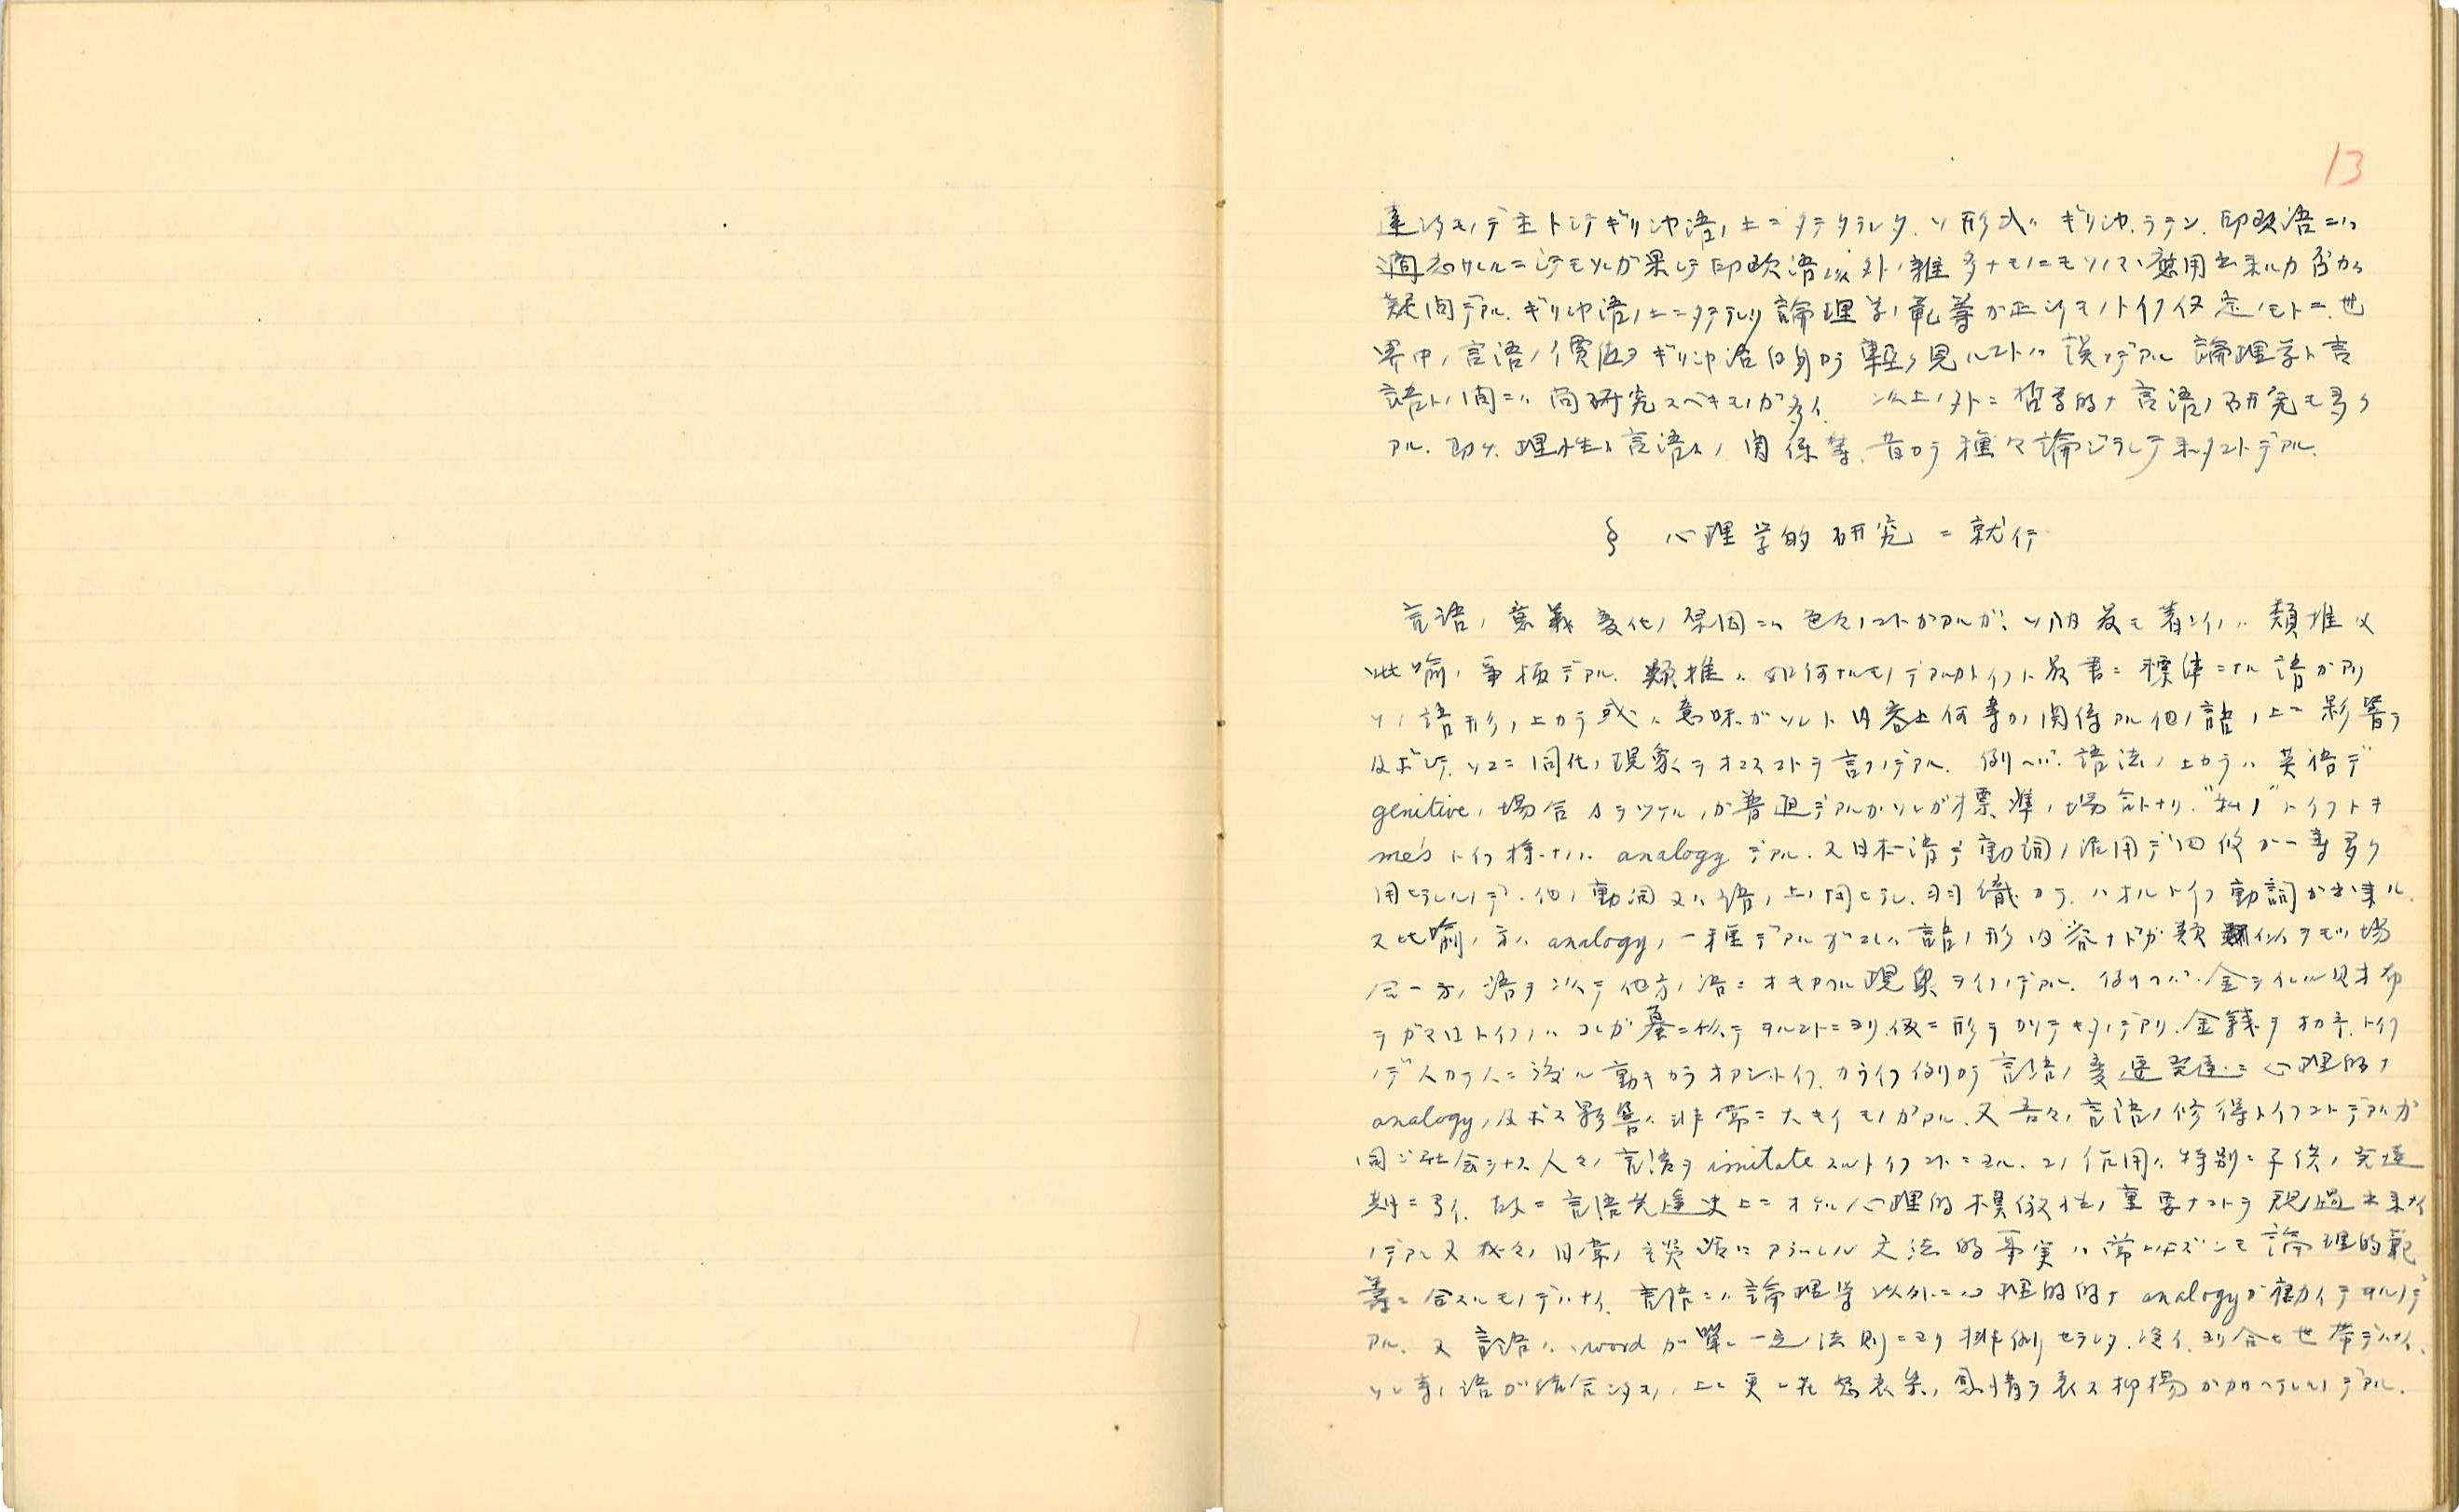 13
達シタモノデ主トシテギリシヤ語ノ上ニタテラレタ.ソノ形式ハギリシヤ.ラテン.印欧語ニハ
適応サレルニシテモソレガ果シテ印欧語以外ノ雑多ナモノニモソノママ應用出来ルカ否カハ
疑問デアル.ギリシヤ語ノ上ニタテラレタ論理学ノ範疇ガ正シイモノトイフ仮定ノモトニ.世
界中ノ言語ノ價値ヲギリシヤ語自身カラ軽ク見ルコトハ誤リデアル 論理学ト言
語トノ間ニハ尚研究スベキモノガ多イ. 以上ノ外ニ哲学的ナ言語ノ研究モ多ク
アル.即チ.理性ト言語トノ関係等.昔カラ種々論ジラレテ来タコトデアル.
§ 心理学的研究ニ就イテ
言語ノ意義変化ノ原因ニハ色々ノコトガアルガ、ソノ内最モ著シイノハ類推又
比喩ノ事柄デアル.類推ハ如何ナルモノデアルカトイフト最書ニ標準ニナル語ガアリ
ソノ語形ノ上カラ或ハ意味ガソレト内容上何等カノ関係アル他ノ語ノ上ニ影響ヲ
及ボシテ.ソコニ同化ノ現象ヲオコスコトヲ言フノデアル. 例ヘバ.語法ノ上カラハ英語デ
genitiveノ場合sヲツケルノガ普通デアルガソレガ標準ノ場合トナリ."私ノ"トイフトキ
me'sトイフ様ナノハanalogyデアル.又日本語デ動詞ノ活用デ四段ガ一番多ク
用ヒラレルノデ.他ノ動詞又ハ語ノ上ニ用ヒラレ.羽織カラ.ハオルトイフ動詞ガ出来ル.
又比喩ノ方ハanalogyノ一種デアルガコレハ語ノ形内容ナドガ類似ヲモツ場
合一方ノ語ヲ以テ他方ノ語ニオキカヘル現象ヲイフノデアル. 例ヘバ.金ヲイレル財布
ヲガマ口トイフノハコレガ蟇ニ似テヲルコトニヨリ.仮ニ形ヲカリテキタノデアリ.金銭ヲオアシ.トイフ
ノデ人カラ人ニ渡ル動キカラオアシトイフ.カウイフ例カラ言語ノ変遷発達ニ心理的ナ
analogyノ及ボス影響ハ非常ニ大キイモノガアル.又吾々ノ言語ノ修得トイフコトデアルガ
同ジ社会ヲナス人々ノ言語ヲimitateスルトイフコトニヨル.コノ作用ハ特別ニ子供ノ発達
期ニ多イ.故ニ言語発達史上ニオケル心理的模倣性ノ重要ナコトヲ観過出来ナイ
ノデアル又我々ノ日常ノ談話ニアラハレル文法的事実ハ常ニ必ズシモ論理的範
疇ニ合スルモノデハナイ.言語ニハ論理学以外ニ心理的的ナanalogyガ働イテヰルノデ
アル.又言語ハ、wordガ単ニ一定ノ法則ニヨリ排列セラレタ.寄合世帯デハナイ.
ソレ等ノ語ガ結合シタ上ニ更ニ感情ヲ表ス抑揚ガ加ヘラレルノデアル.